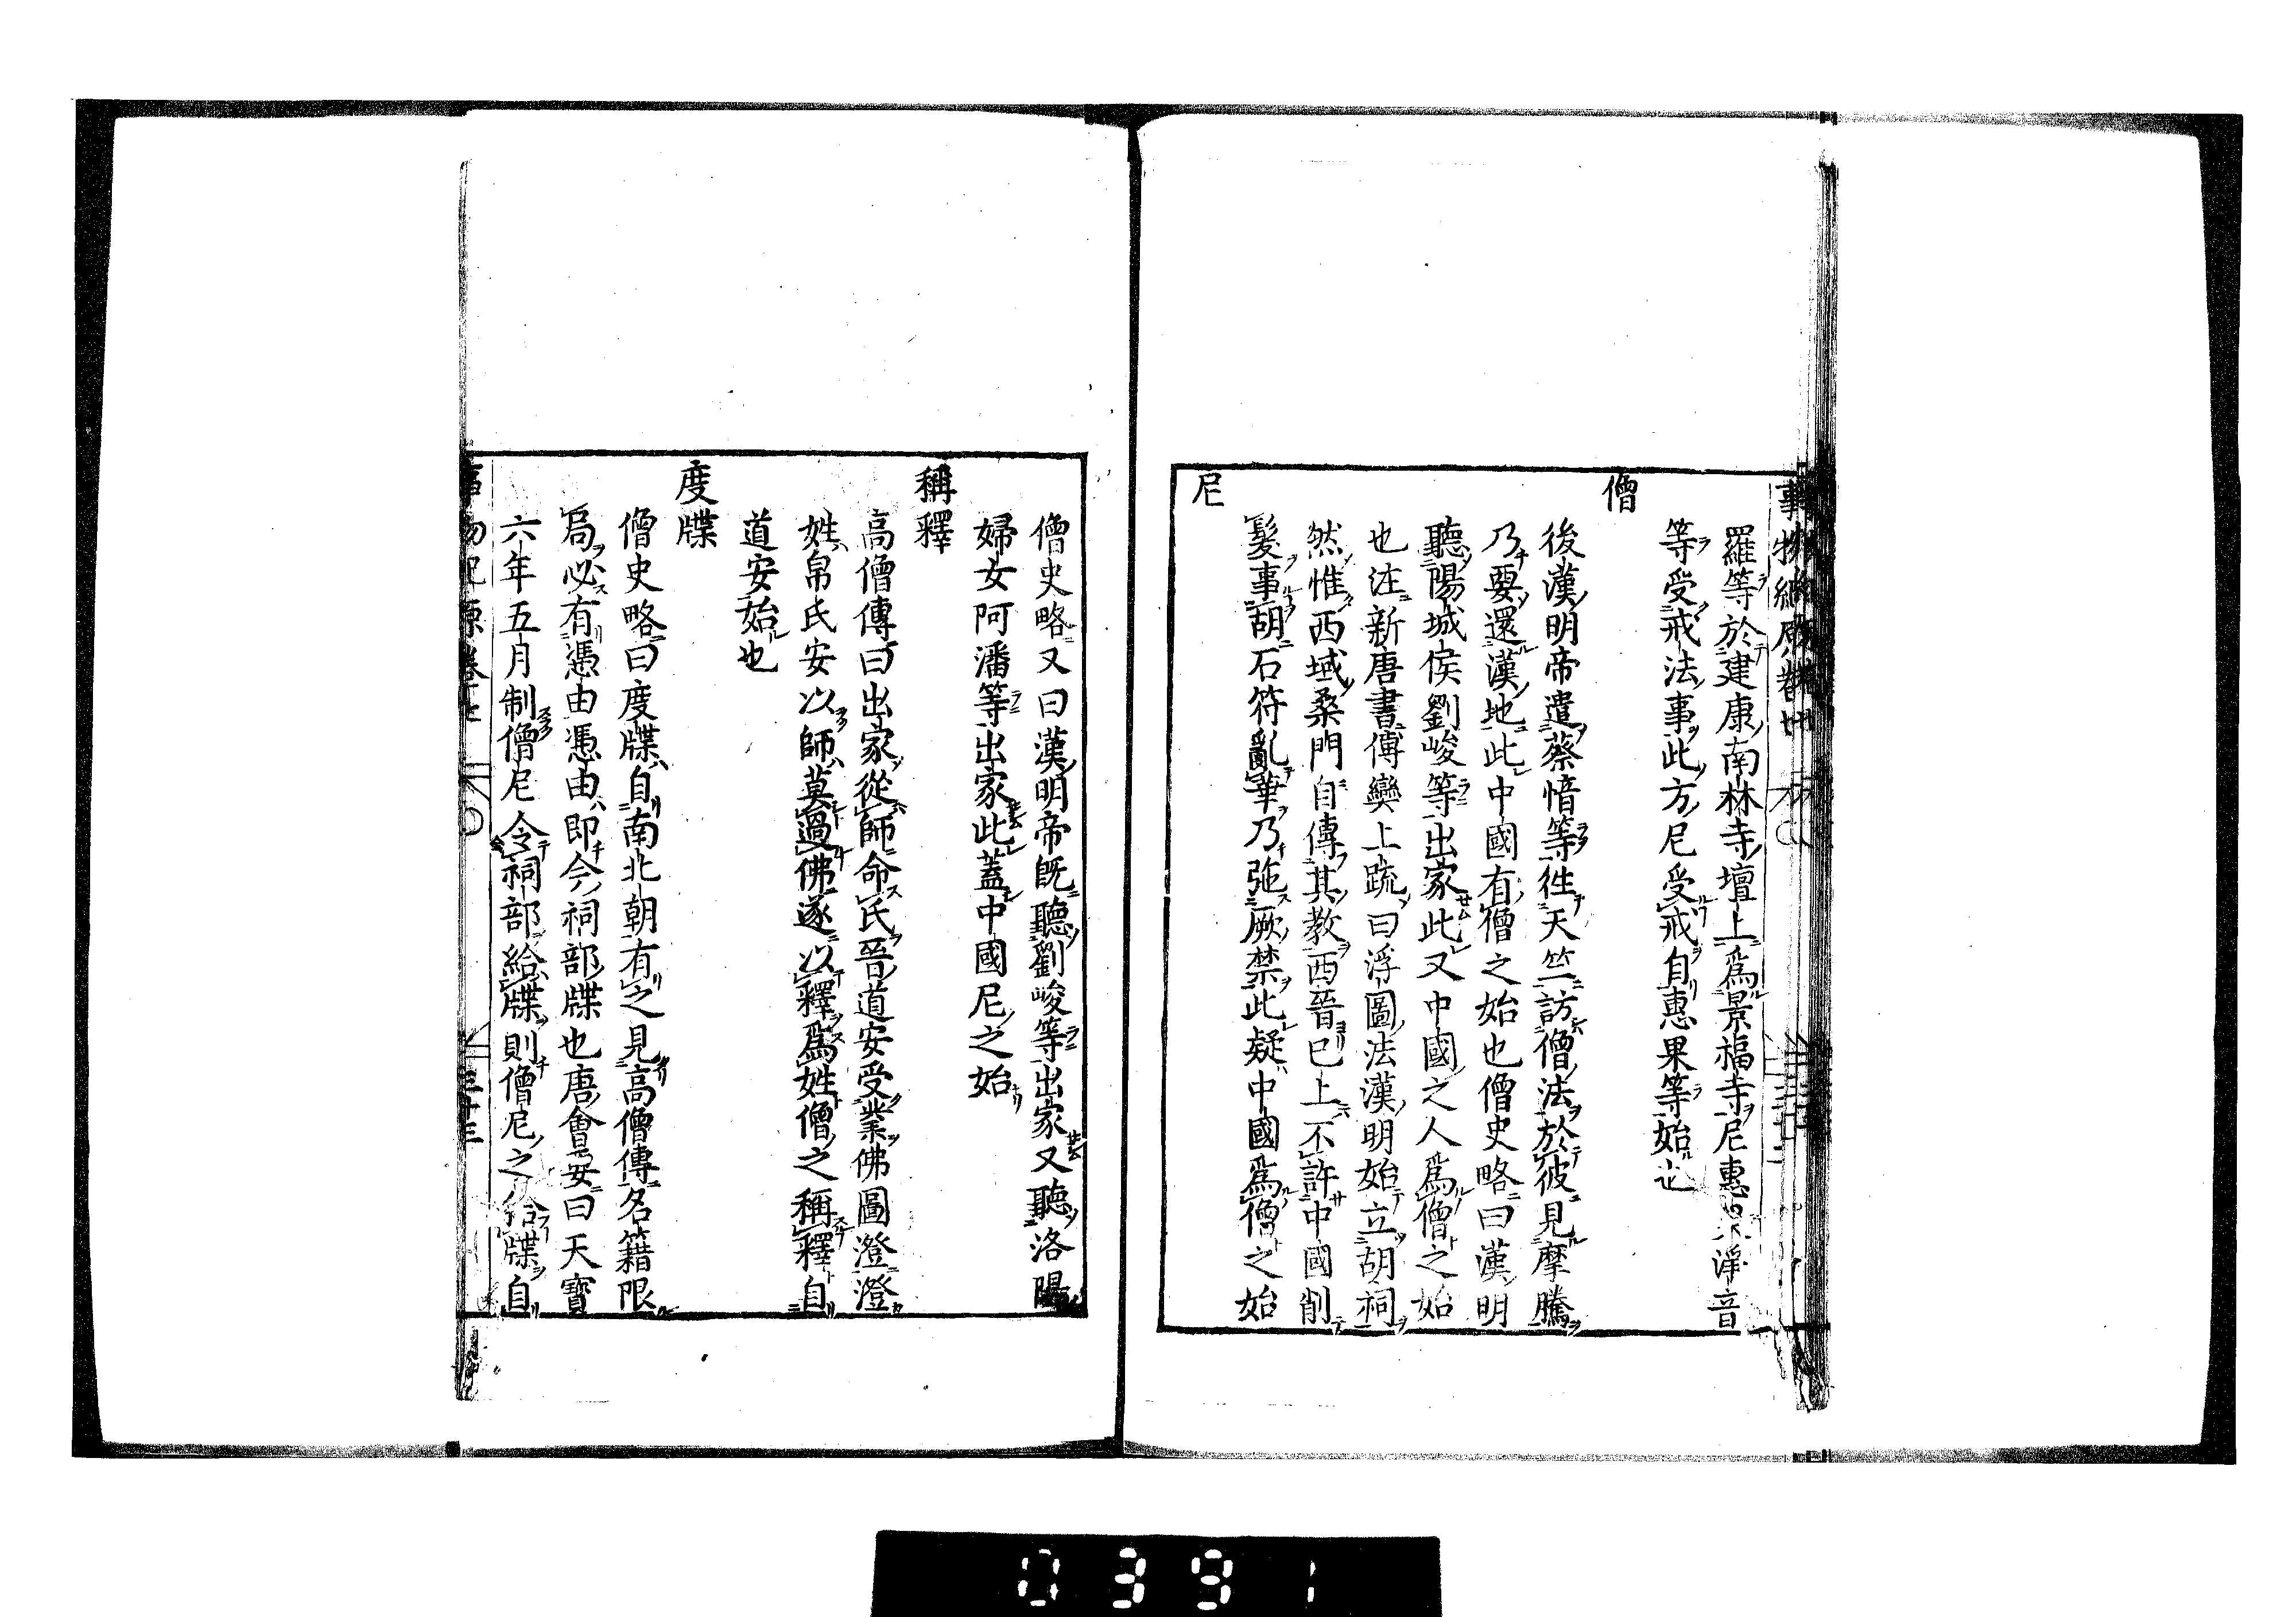 羅等於建康南林寺壇上爲景福寺尼惠淨音
等受戒法事此方尼受戒自惠果等始也
僧
後漢明帝遣蔡愔等徃天竺訪僧法於彼見摩騰
乃要還漢地此中國有僧之始也僧史略曰漢明
聽陽城侯劉峻等出家此又中國之人爲僧之始
也注新唐書傅奕上疏曰浮圖法漢明始立胡祠
然惟西域桑門自傳其教西晉巳上不許中國削
髮事胡石符亂華乃弛厥禁此疑中國爲僧之始
尼
僧史略又曰漢明帝旣聽劉峻等出家又聽洛陽
婦女阿潘等出家此蓋中國尼之始
稱釋
高僧傳曰出家從師命氏晉道安受業佛圖澄澄
姓帛氏安以師莫過佛遂以釋爲姓僧之稱釋自
道安始也
度牒
僧史略曰度牒自南北朝有之見高僧傳名籍限
局必有憑由憑由即今祠部牒也唐會要曰天寶
六年五月制僧尼令祠部給牒則僧尼之給牒自
事物紀原卷七
三十三
0391